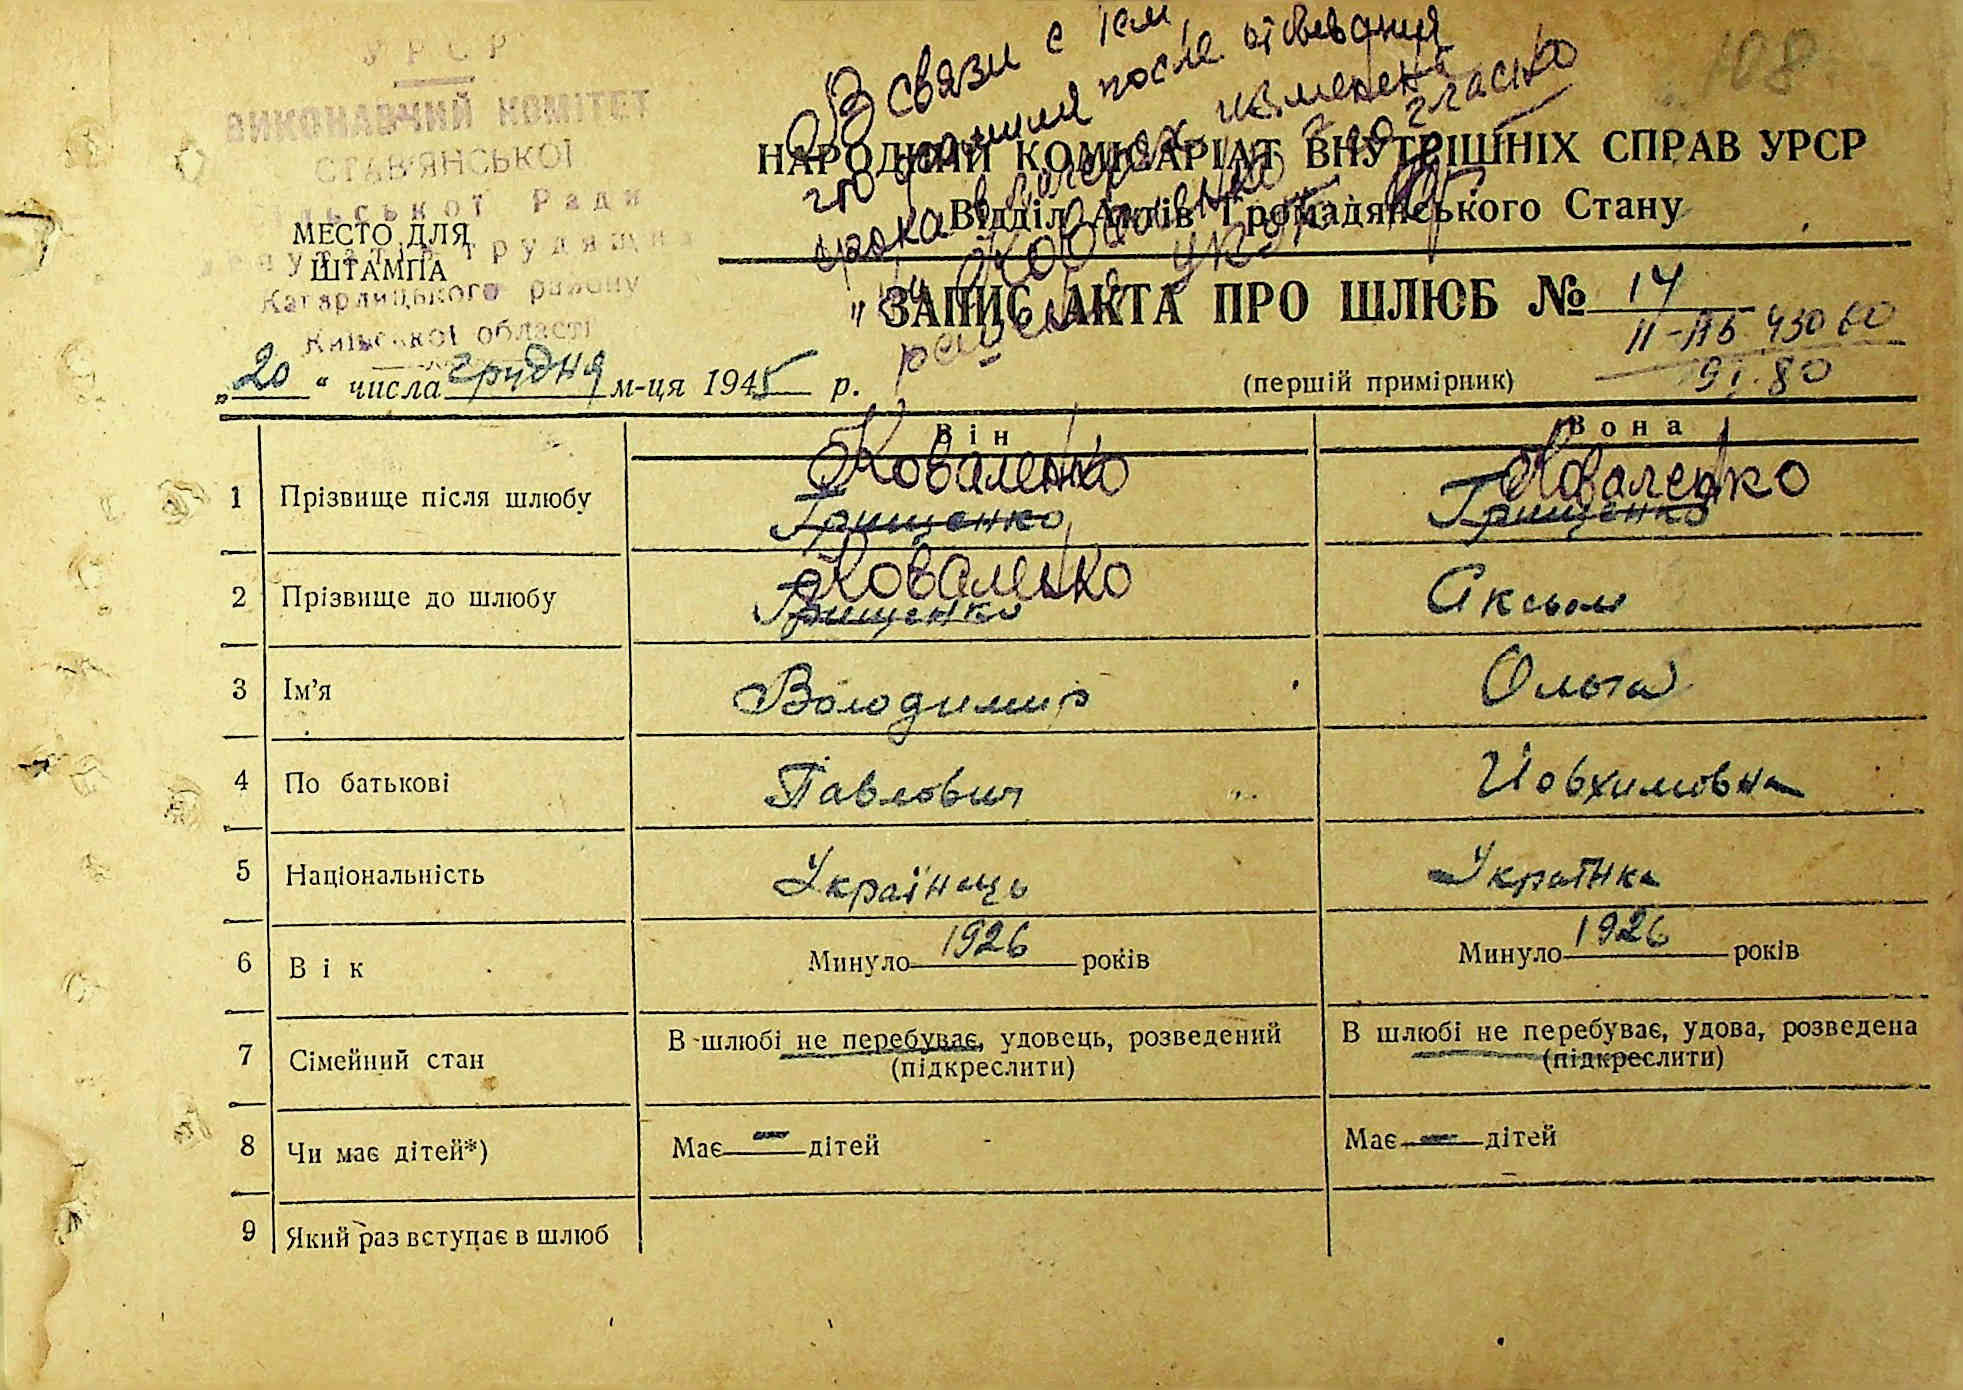 108
В связи с тем
что фамилия после отбывания
срока в лагерях изменена
на Коваленко согласно
УРСР
ВИКОНАВЧИЙ КОМІТЕТ
СТАВ'ЯНСЬКОЇ
Сільської Ради
депутатів трудящих
Кагарлицького району
Київської області
МЕСТО ДЛЯ
ШТАМПА
НАРОДНИЙ КОМІСАРІАТ ВНУТРІШНІХ СПРАВ УРСР
Відділ Актів Громадянського Стану
ЗАПИС АКТА ПРО ШЛЮБ № 14
II-АБ 43060
91.80
„20“ числа грудня м-ця 1945 р.
(перший примірник)
Він Вона
1 Прізвище після шлюбу Коваленко Грищенко Коваленко Грищенко
2 Прізвище до шлюбу Коваленко Грищенко Аксьом
3 Ім'я Володимир Ольга
4 По батькові Павлович Йовхимовна
5 Національність Українець Українка
6 Вік Минуло 1926 років Минуло 1926 років
7 Сімейний стан В шлюбі не перебуває, удовець, розведений (підкреслити) В шлюбі не перебуває, удова, розведена (підкреслити)
8 Чи має дітей*) Має — дітей Має — дітей
9 Який раз вступає в шлюб